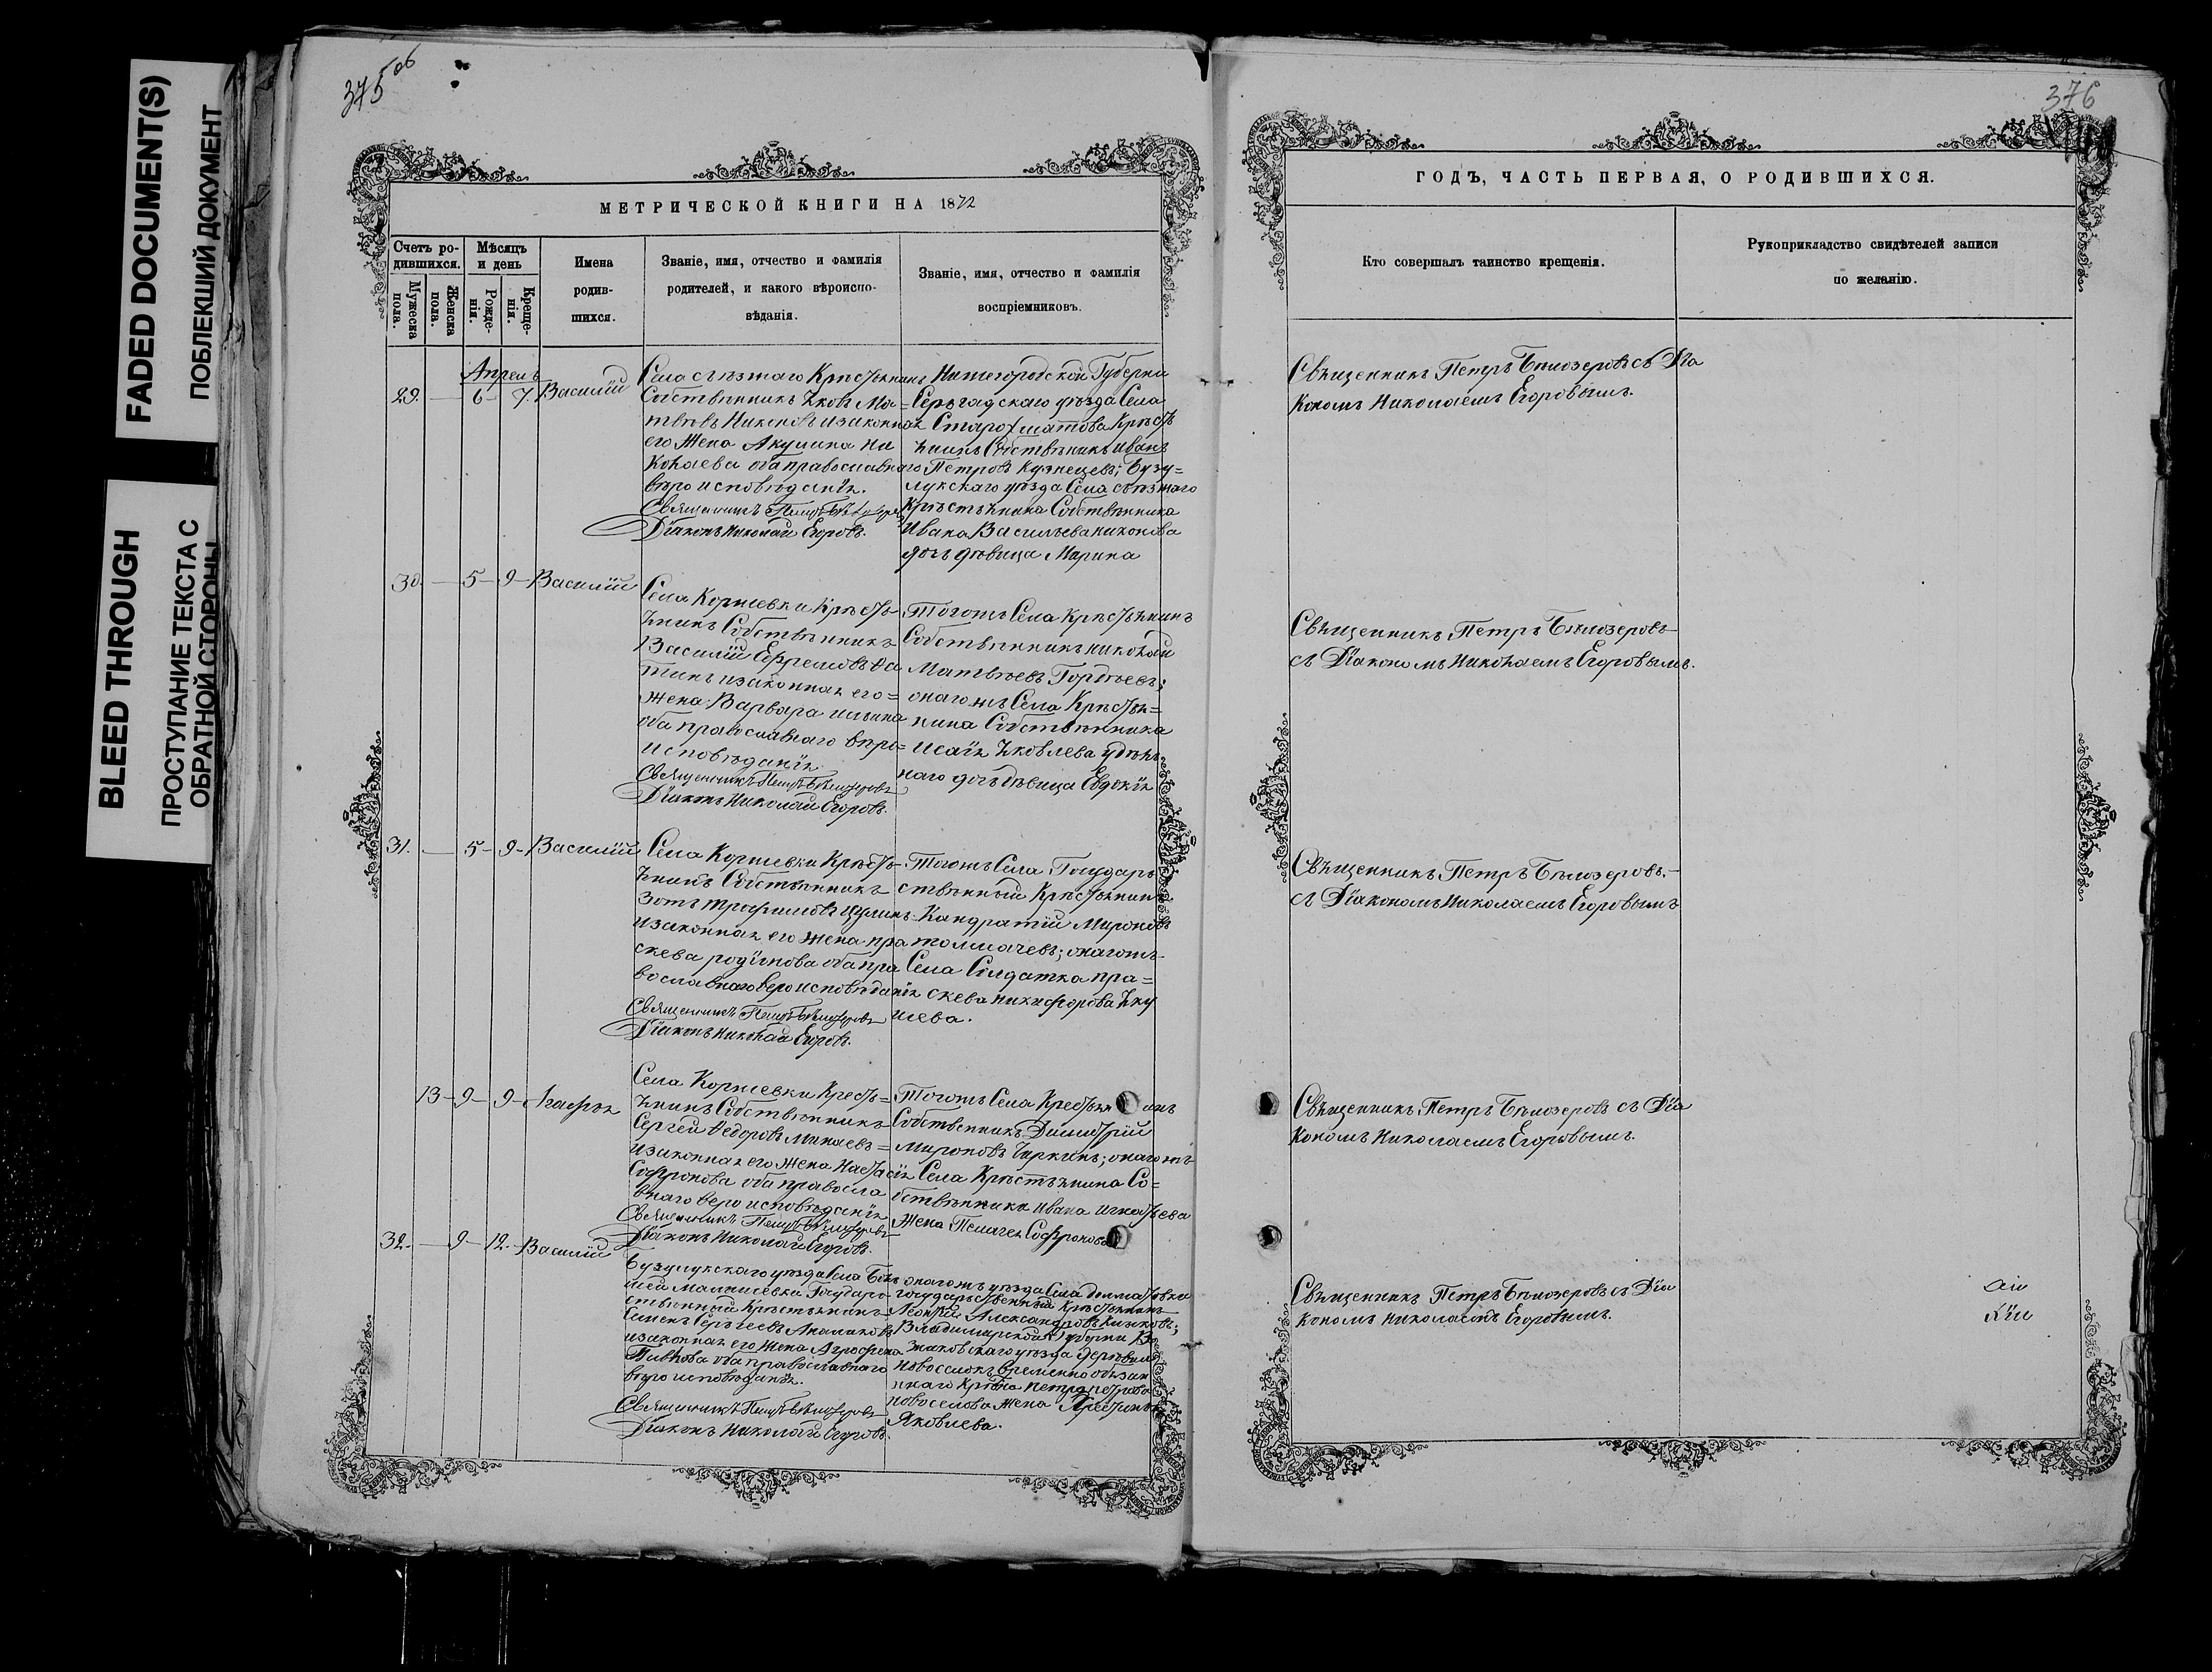 FADED DOCUMENT(S)
ПОБЛЕКШИЙ ДОКУМЕНТ
BLEED THROUGH
ПРОСТУПАНИЕ ТЕКСТА С
ОБРАТНОЙ СТОРОНЫ
375
МЕТРИЧЕСКОЙ КНИГИ НА 1872
Счетъ ро-
дившихся.
Мужеска
пола.
Женска
пола.
Мѣсяцъ
и день
Рожде-
нія.
Креще-
нія.
Имена
родив-
шихся.
Званіе, имя, отчество и фамилія
родителей, и какого вѣроиспо-
вѣданія.
Званіе, имя, отчество и фамилія
воспріемниковъ.
Апрель
29. — 6 — 7. Василій
Села съѣзжаго Крѣстьянинъ
Собствѣнникъ Яковъ Ма-
твѣевъ Никоновъ изаконная
его жена Акулина Ни
колаева оба православнаго
вѣроисповѣданія.
Священникъ Петръ Бѣлозеровъ
Діаконъ Николай Егоровъ.
Нижегородской Губерни
Серьгадскаго уѣзда Села
Крѣсть
янинъ Собствѣникъ Иванъ
Петровъ Кузнецевъ; Бузу=
лукскаго уѣзда Села съѣзжаго
Крѣстьянина Собствѣнника
Ивана Васильева никонова
дочь дѣвица Марина
30. — 5 — 9 — Василій
Села Корнеевки Крѣсть-
янинъ Собствѣнникъ
Василій Ефремовъ
изаконная его=
жена Варвара ильина
оба православнаго вѣро=
исповѣданія
Священникъ Петръ Бѣлозеровъ
Діаконъ Николай Егоровъ.
Тогожъ Села Крѣстьянинъ
Собствѣнникъ николай
Матвѣевъ Гордѣевъ;
онагожъ Села Крѣстья=
нина Собствѣнника
Исаія Яковлева
дочь дѣвица Евдокія
31. — 5 — 9 — Василій
Села Корнеевки Крѣсть-
янинъ Собствѣнникъ
Зотъ трофимовъ
изаконная его жена пра
скева родіонова оба пра
вославнаго вероисповѣданія
Священникъ Петръ Бѣлозеровъ
Діаконъ Николай Егоровъ.
Тогожъ Села Государь
ствѣнный Крѣстьянинъ
Кандратій Мироновъ
толмачевъ; онагожъ
Села Солдатка пра=
скева никифорова Яку
шева.
13 — 9 — 9 — Агафья
Села Корнеевки Кресть=
янинъ Собствѣнникъ
Сергей Федоровъ Минаевъ=
изаконная его жена Настасія
Софронова оба правосла
внаго вероисповѣданія
Священникъ Петръ Бѣлозеровъ
Діаконъ Николай Егоровъ.
Тогожъ Села Крестьян инъ
Собственникъ Димитрій
Мироновъ Чиркинъ; онагожъ
Села Крѣстьянина Со=
бствѣнника Ивана игнатьева
жена Пелагея Софронова
32. — 9 — 12. Василій
Бузулукскаго уѣзда Села Боль
шей малышевки Государь
ственный Крѣстьянинъ
Семенъ Сергѣевъ
изаконная его жена Агрофена
оба православнаго
вѣроисповѣданія.
Священникъ Петръ Бѣлозеровъ
Діаконъ Николай Егоровъ.
онагожъ уѣзда Села
государьственный Крѣстьянинъ
Александровъ
Владимирской Губерни Вя
зниковскаго уѣзда деревни
новоселокъ временно обязан
наго петра петрова
новоселова жена
Яковлева.
376
ГОДЪ, ЧАСТЬ ПЕРВАЯ, О РОДИВШИХСЯ.
Кто совершалъ таинство крещенія.
Рукоприкладство свидѣтелей записи
по желанію.
Свѣщенникъ Петръ Бѣлозеровъ съ Діа
кономъ Николаемъ Егоровымъ.
Свѣщенникъ Петръ Бѣлозеровъ
съ Діакономъ Николаемъ Егоровымъ.
Свѣщенникъ Петръ Бѣлозеровъ.
съ Діакономъ Николаемъ Егоровымъ
Свѣщенникъ Петръ Бѣлозеровъ съ Діа
кономъ Николаемъ Егоровымъ.
Свѣщенникъ Петръ Бѣлозеровъ съ Діа
кономъ Николаемъ Егоровымъ.